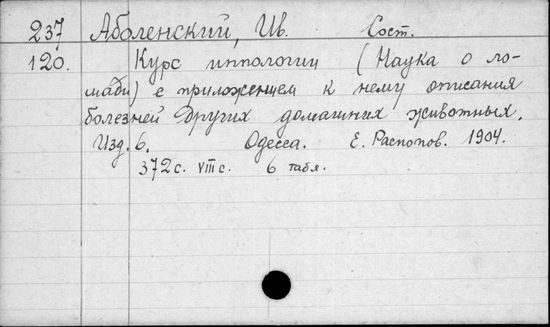 237 Аболенский, Ив. Сост.
120. Курс иппологии (Наука о ло-
шади) с приложением к нему описания
болезней других домашних животных.
Изд. 6. Одесса. Е. Распопов. 1904.
372с. VIIIс. 6 табл.